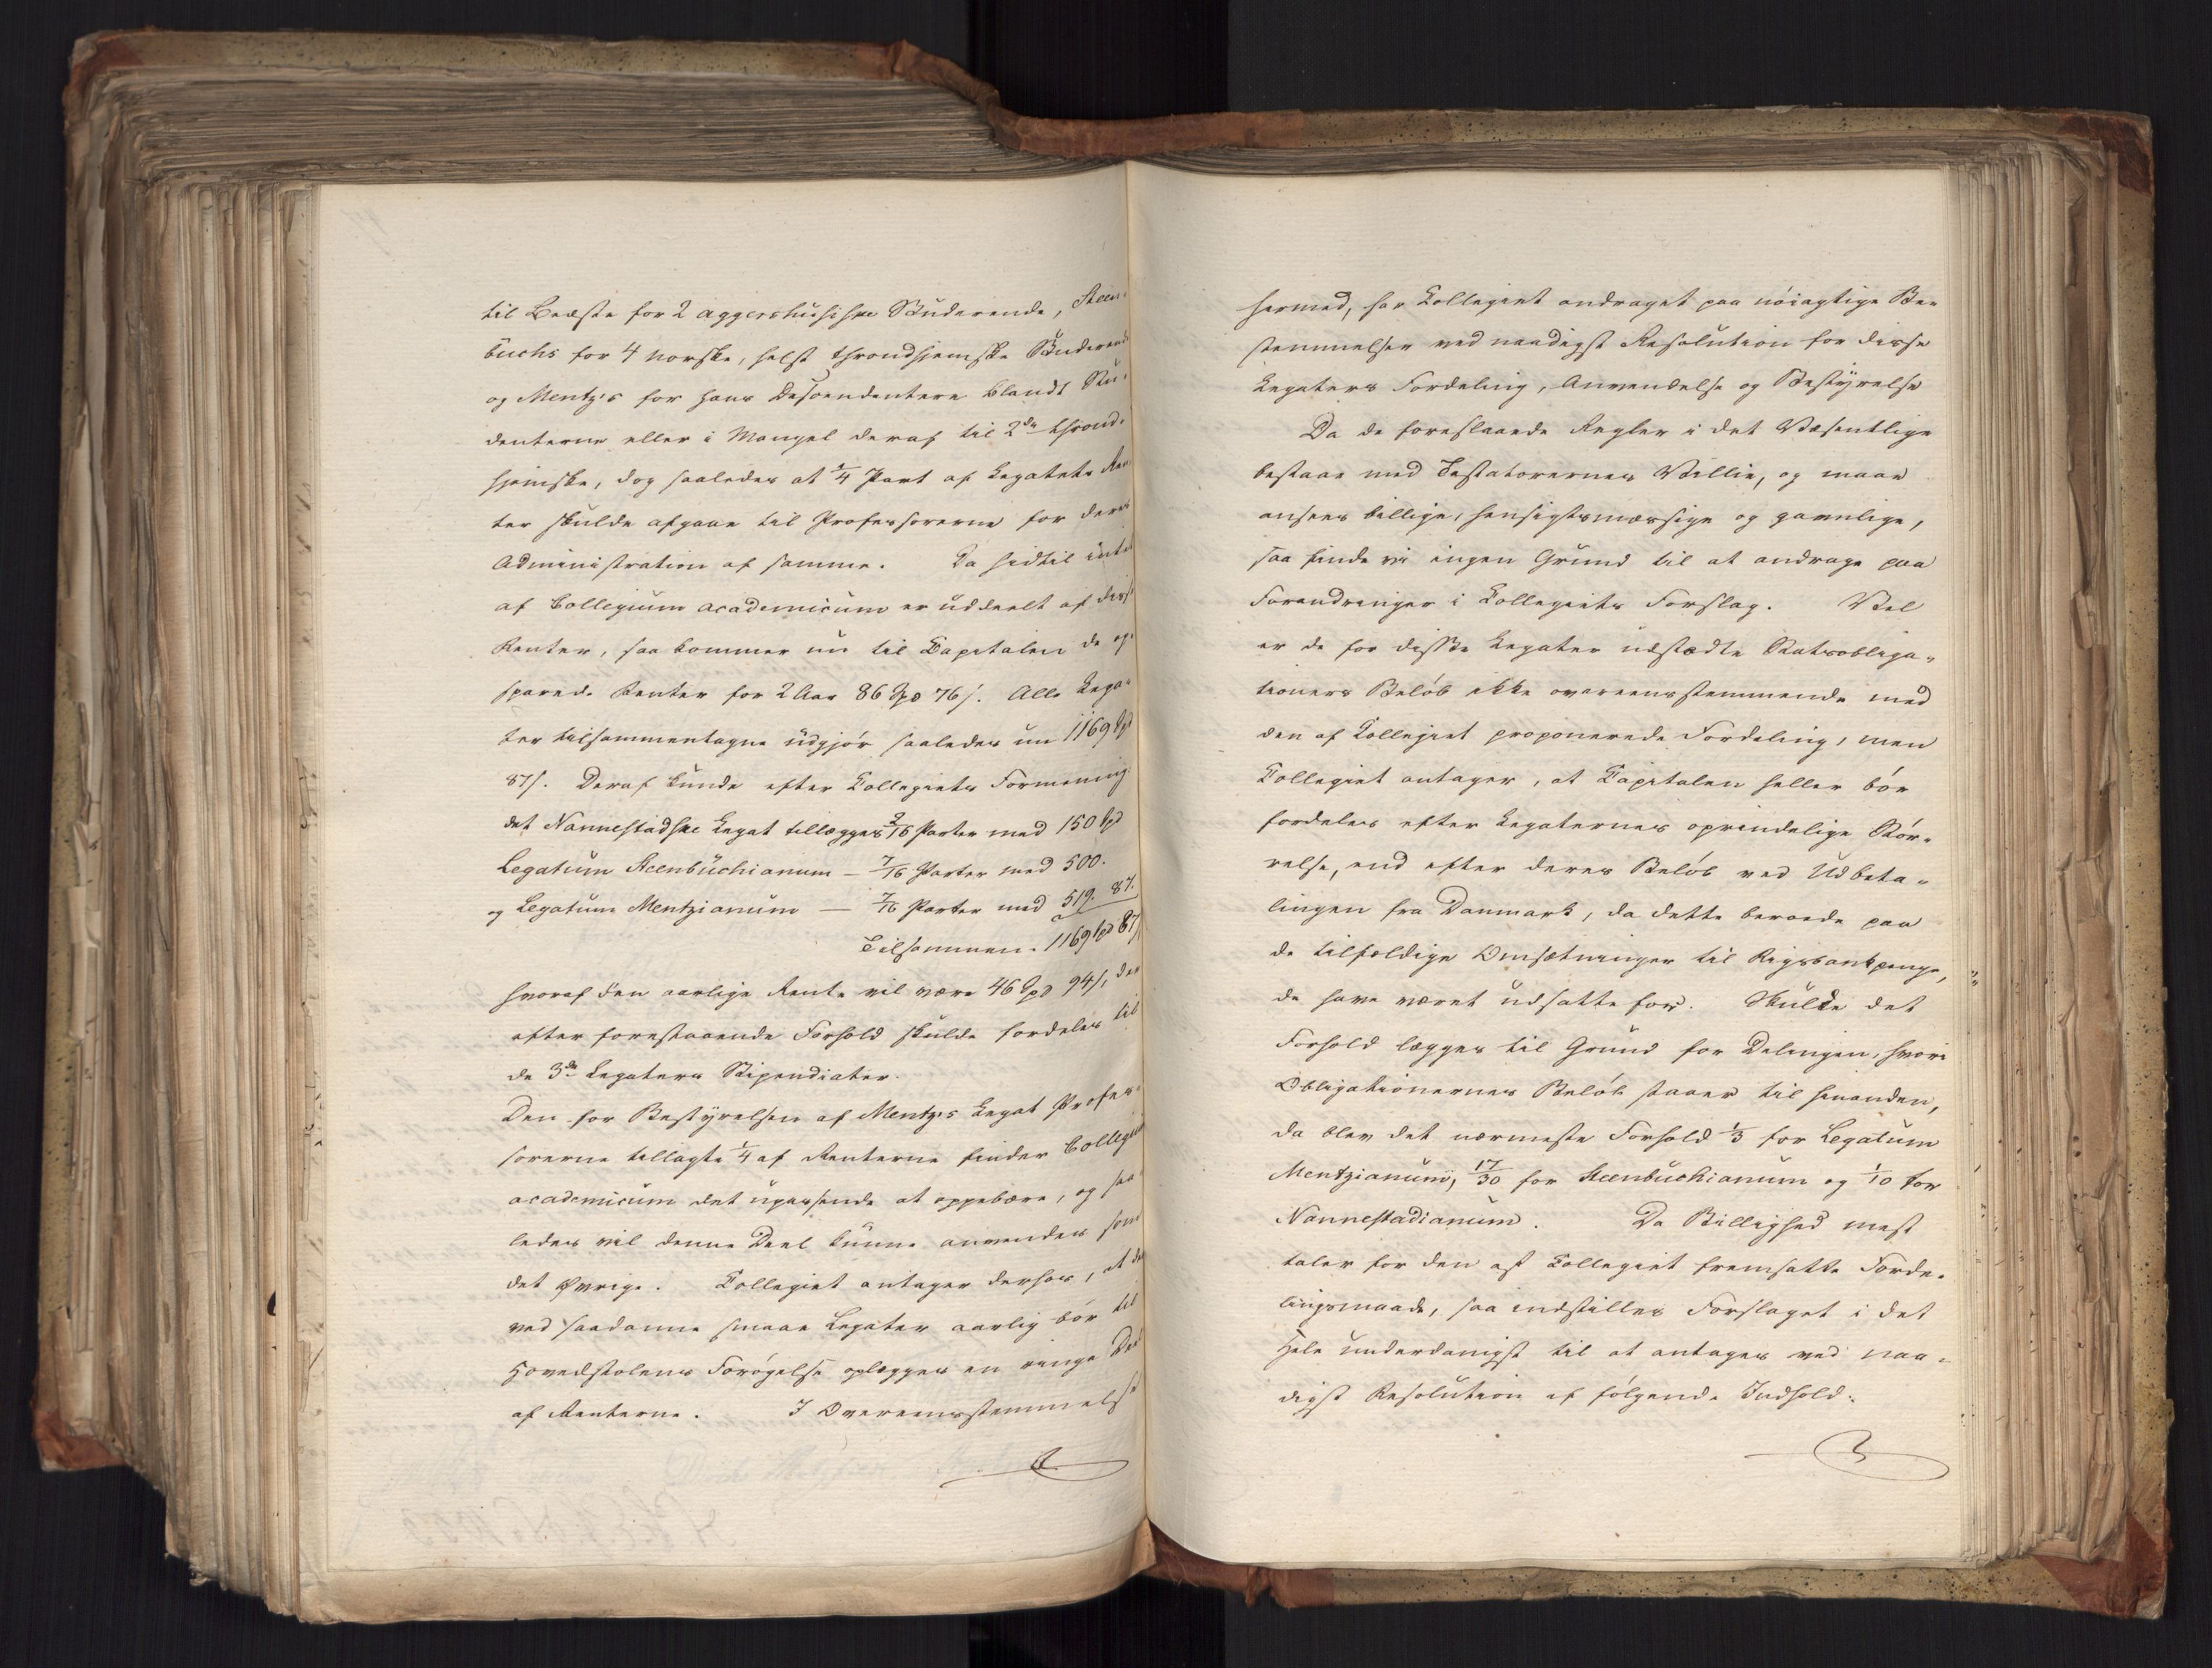 til Bedste for 2 aggershusiske Studerende, Steen-
buchs for 4 norske, helst throndhjemske Studerende
og Mentz's for hans Descendentere blandt Stu-
denterne eller i Mangel deraf til 2de thrond-
hjemske, dog saaledes at 1/4 Part af Legatets Ren-
ter skulde afgaae til Professorerne for deres
Administration af samme. Da hidtil intet
af Collegium academicum er uddeelt af disse
Renter, saa kommer nu til Capitalen de op-
sparede Renter for 2 Aar 86 Spd 76 s. Alle Lega-
ter tilsammentagne udgjør saaledes nu 1169 Spd
87 s. Deraf kunde efter Collegiets Formening
det Nannestadske Legat tillægges 2/16 Parter med 150 Spd
Legatum Steenbuchianum – 7/16 Parter med 500.
og Legatum Mentzianum – 7/16 Parter med 519. 87.
Tilsammen. 1169 Spd 87 s
hvoraf den aarlige Rente vil være 46 Spd 94 s, der
efter forestaaende Forhold skulde fordeles til
de 3de Legaters Stipendiater.
Den for Bestyrelsen af Mentz's Legat Profes-
sorerne tillagte 1/4 af Renterne finder Collegium
academicum det upassende at oppebære, og saa-
ledes vil denne Deel kunne anvendes som
det Øvrige. Collegiet antager derhos, at der
ved saadanne smaae Legater aarlig bør til
Hovedstolens Forøgelse oplægges en ringe Deel
af Renterne. I Overeensstemmelse
hermed, har Collegiet andraget paa nøiagtige Be-
stemmelser ved naadigst Resolution for disse
Legaters Fordeling, Anvendelse og Bestyrelse
Da de foreslaaede Regler i det Væsentlige
bestaae med Testatorernes Villie, og maae
ansees billige, hensigtsmæssige og gavnlige,
saa finde vi ingen Grund til at andrage paa
Forandringer i Collegiets Forslag. Vel
er de for disse Legater udstædte Statsobliga-
tioners Beløb ikke overeensstemmende med
den af Collegiet proponerede Fordeling, men
Collegiet antager, at Capitalen heller bør
fordeles efter Legaternes oprindelige Stør-
relse, end efter deres Beløb ved Udbeta-
lingen fra Danmark, da dette beroede paa
de tilfældige Omsætninger til Rigsbankpenge,
de have været udsatte for. Skulde det
Forhold lægges til Grund for Delingen, hvori
Obligationernes Beløb staaer til hinanden,
da blev det nærmeste Forhold 1/3 for Legatum
Mentzianum, 17/30 for Steenbuchianum og 1/10 for
Nannestadianum. Da Billighed mest
taler for den af Collegiet fremsatte Forde-
lingsmaade, saa indstilles Forslaget i det
Hele underdanigst til at antages ved naa-
digst Resolution af følgende Indhold: